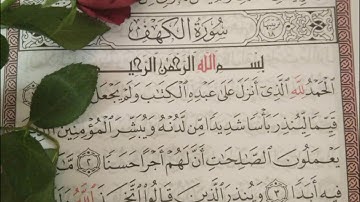 سُورَةُ الكَهْفِ
بِسْمِ اللَّهِ الرَّحْمَٰنِ الرَّحِيمِ
الْحَمْدُ لِلَّهِ الَّذِي أَنزَلَ عَلَىٰ عَبْدِهِ الْكِتَابَ وَلَمْ يَجْعَل
قَيِّمًا لِّيُنذِرَ بَأْسًا شَدِيدًا مِّن لَّدُنْهُ وَيُبَشِّرَ الْمُؤْمِنِينَ
يَعْمَلُونَ الصَّالِحَاتِ أَنَّ لَهُمْ أَجْرًا حَسَنًا ٢
فِيهِ أَبَدًا ٣ وَيُنذِرَ الَّذِينَ قَالُوا اتَّخَذَ اللَّهُ